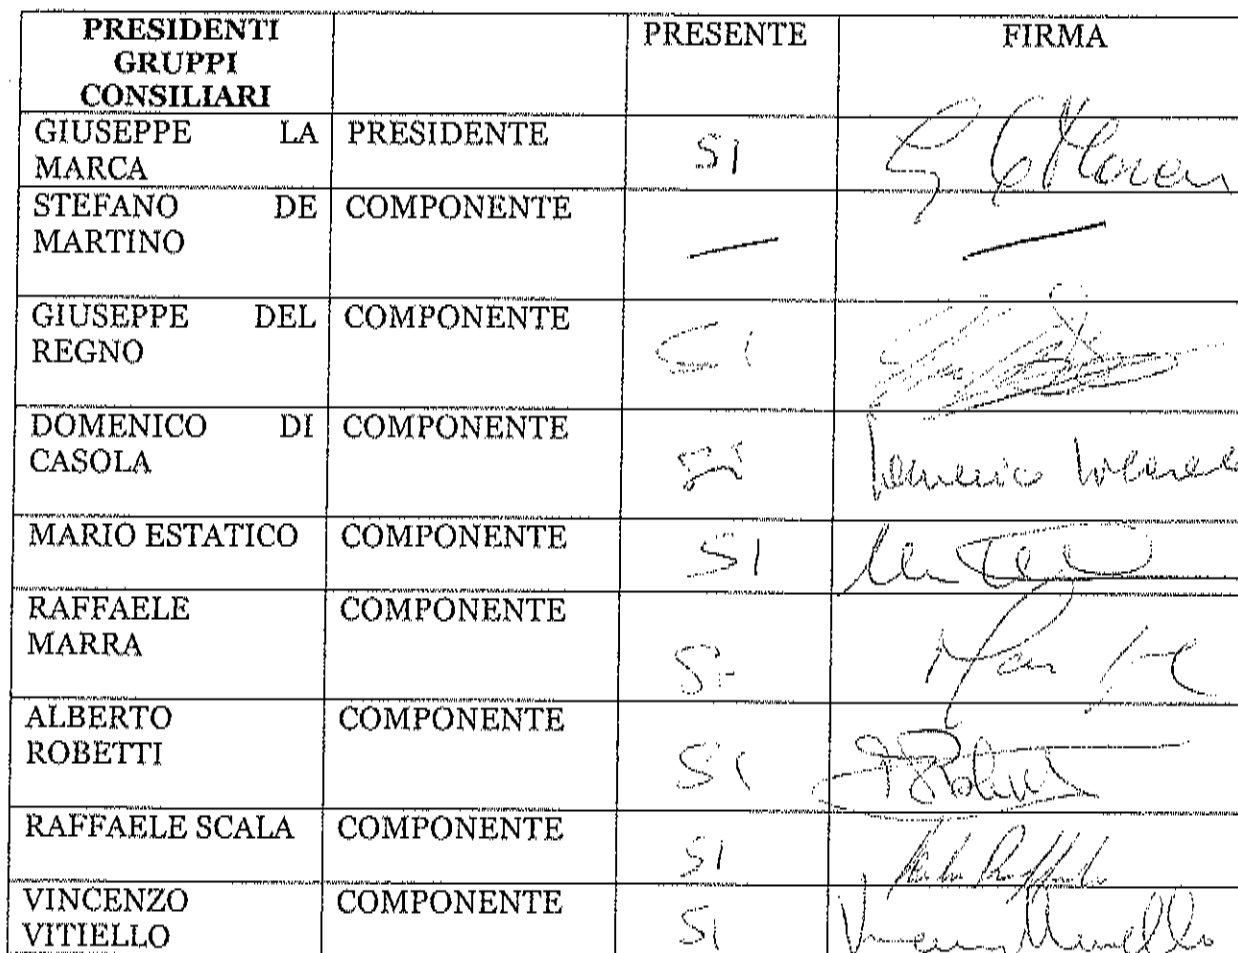 PRESIDENTI GRUPPI CONSILIARI PRESENTE FIRMA
GIUSEPPE LA MARCA PRESIDENTE SI
STEFANO DE MARTINO COMPONENTE
GIUSEPPE DEL REGNO COMPONENTE SI
DOMENICO DI CASOLA COMPONENTE SI
MARIO ESTATICO COMPONENTE SI
RAFFAELE MARRA COMPONENTE SI
ALBERTO ROBETTI COMPONENTE SI
RAFFAELE SCALA COMPONENTE SI
VINCENZO VITIELLO COMPONENTE SI